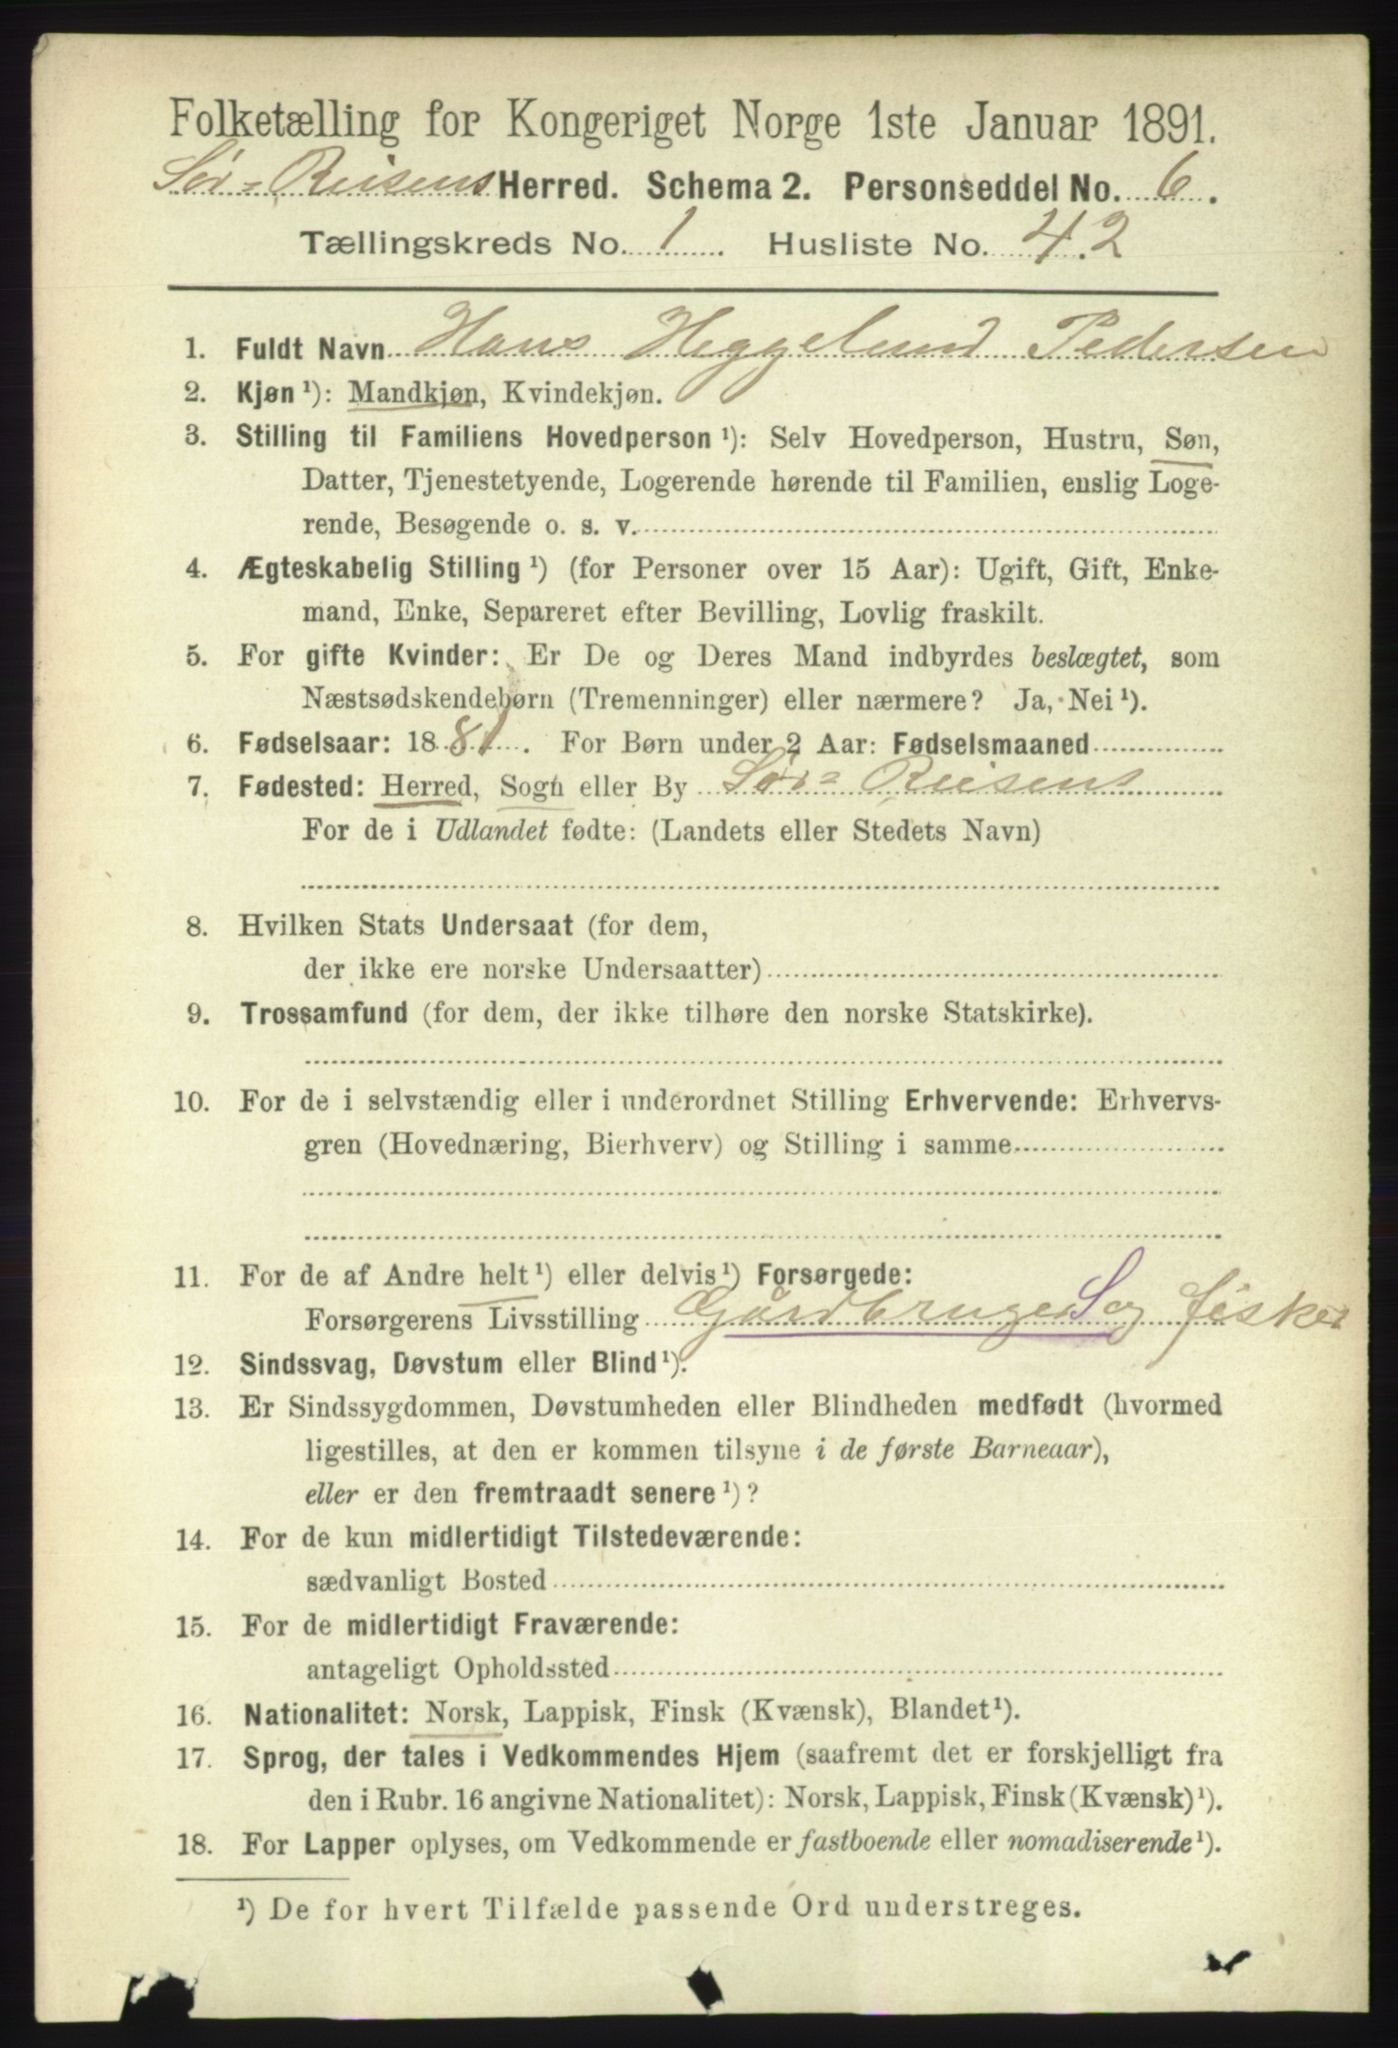 Folketælling for Kongeriget Norge 1ste Januar 1891.
Sør-Reisens Herred. Schema 2. Personseddel No. 6.
Tællingskreds No. 1. Husliste No. 42
1. Fuldt Navn Hans Heggelund Pedersen
2. Kjøn ¹): Mandkjøn, Kvindekjøn.
3. Stilling til Familiens Hovedperson ¹): Selv Hovedperson, Hustru, Søn,
Datter, Tjenestetyende, Logerende hørende til Familien, enslig Loge-
rende, Besøgende o. s. v.
4. Ægteskabelig Stilling ¹) (for Personer over 15 Aar): Ugift, Gift, Enke-
mand, Enke, Separeret efter Bevilling, Lovlig fraskilt.
5. For gifte Kvinder: Er De og Deres Mand indbyrdes beslægtet, som
Næstsødskendebørn (Tremenninger) eller nærmere? Ja, Nei ¹).
6. Fødselsaar: 1881. For Børn under 2 Aar: Fødselsmaaned
7. Fødested: Herred, Sogn eller By Sør-Reisens
For de i Udlandet fødte: (Landets eller Stedets Navn)
8. Hvilken Stats Undersaat (for dem,
der ikke ere norske Undersaatter)
9. Trossamfund (for dem, der ikke tilhøre den norske Statskirke).
10. For de i selvstændig eller i underordnet Stilling Erhvervende: Erhvervs-
gren (Hovednæring, Bierhverv) og Stilling i samme
11. For de af Andre helt ¹) eller delvis ¹) Forsørgede:
Forsørgerens Livsstilling Gårdbruger S og fisker
12. Sindssvag, Døvstum eller Blind ¹).
13. Er Sindssygdommen, Døvstumheden eller Blindheden medfødt (hvormed
ligestilles, at den er kommen tilsyne i de første Barneaar),
eller er den fremtraadt senere ¹)?
14. For de kun midlertidigt Tilstedeværende:
sædvanligt Bosted
15. For de midlertidigt Fraværende:
antageligt Opholdssted
16. Nationalitet: Norsk, Lappisk, Finsk (Kvænsk), Blandet ¹).
17. Sprog, der tales i Vedkommendes Hjem (saafremt det er forskjelligt fra
den i Rubr. 16 angivne Nationalitet): Norsk, Lappisk, Finsk (Kvænsk) ¹).
18. For Lapper oplyses, om Vedkommende er fastboende eller nomadiserende ¹).
¹) De for hvert Tilfælde passende Ord understreges.